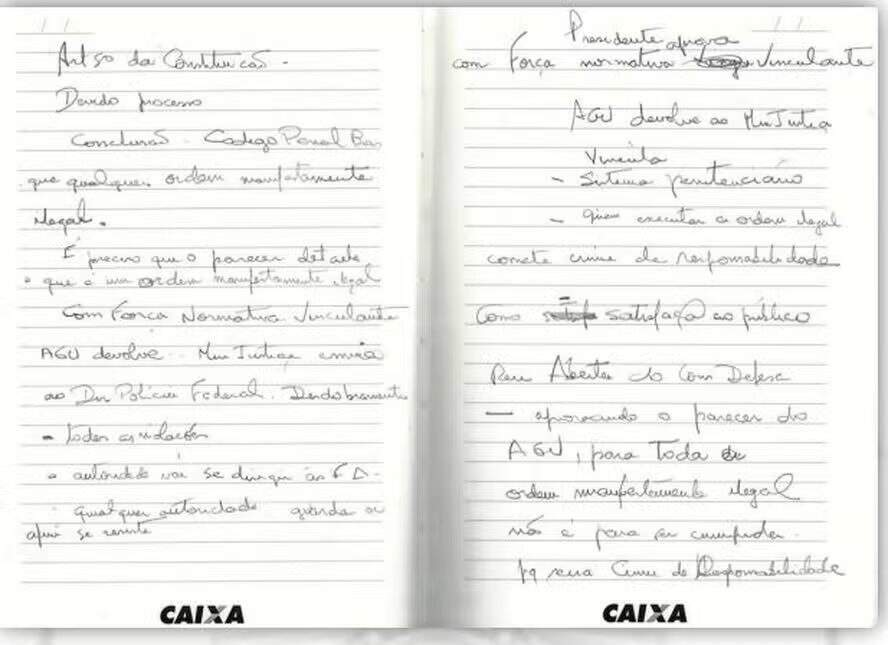 Art 50 da Constituição -
Devido processo
Conclusão - Codego Penal Bas
que qualquer ordem manifestamente
ilegal.
É preciso que o parecer detalhe
o que é um ordem manifestamente ilegal
Com Força Normativa Vinculante
AGU devolve Min Justiça envia
ao Dir Polícia Federal.
- todas as
- autoridade vai se dirigir às
qualquer autoridade
se
CAIXA
Presidente aprova
com Força normativa Vinculante
AGU devolve ao Min Justiça
Vincula
- Sistema penitenciário
- quem executar a ordem ilegal
comete crime de responsabilidade
Como satisfaçã ao público
Reu Aberta do Com Defesa
- aprovando o parecer do
AGU, para Toda
ordem manifestamente ilegal
não é para ser cumprida.
pq seria Crime de Responsabilidade
CAIXA